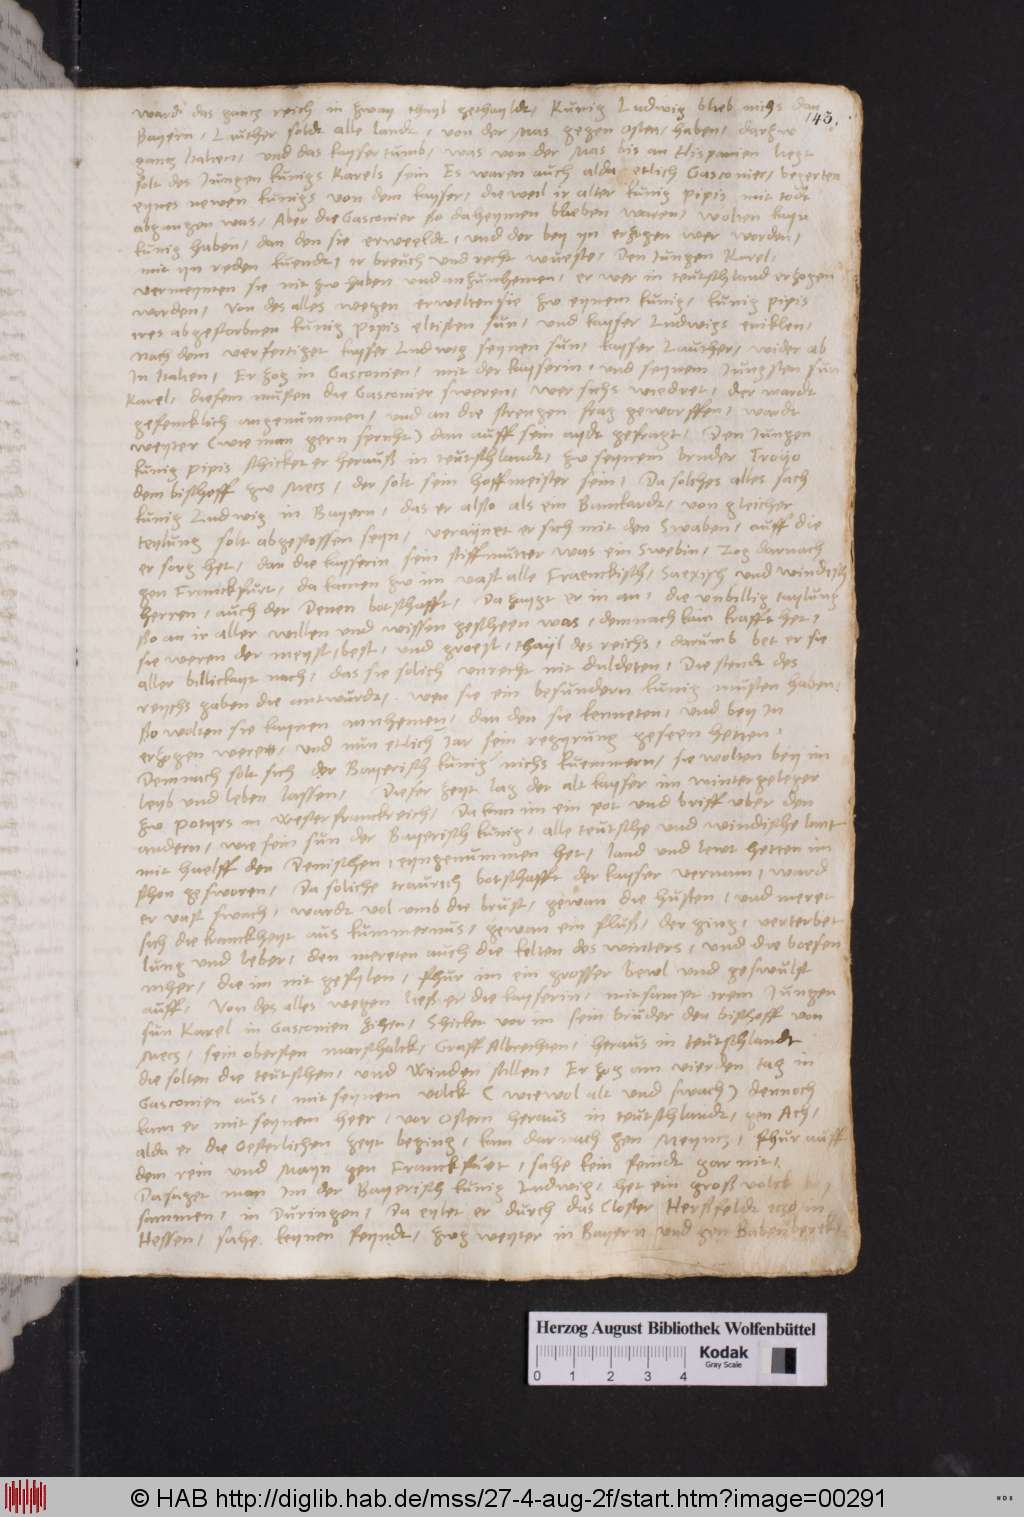 143.
wardt das gancz reich in zway thayl gethayldt, Kunig Ludwig blieb nichs dan
Bayern, Lauther soldt alle landt, von der Mas gegen osten, haben, darzw
gancz Italien, und das kaysertumb, was von der Mas bis an Hispanien ligt
solt des Jungen kunigs Karels sein Es waren auch alda etlich Gasconier, begerten
eynes newen kunigs von dem kayser, die weil ir alter kunig pipis mit todt
abgangen was, Aber die Gasconier so daheymen blieben waren, wolten kayn
kunig haben, dan den sie erweeldt, und der bey yn erzogen wer worden,
mit yn reden kuendt, ir breuch und recht wueste, Den Jungen Karel,
vermeynten sie nit zw haben und anzunhemen, er wer in teutschland erzogen
worden, Von des alles wegen erwelten sie zw eynem kunig, kunig pipis
ires abgestorbnen kunig pipis eltisten sun, und kayser Ludwigs eniklen,
Nach dem verfertiget kayser Ludwig seynen sun, kayser Lauther, wider ab
In Italien, Er zog in Gasconien, mit der kayserin, und seynem Jungsten sun
Karel, diesem musten die Gasconier sweren, wer sichs wiedret, der wardt
gefencklich angenummen, und an die strengen frag geworffen, wardt
weyter (wie man gern spricht) dan auff sein aydt gefragt, Den Jungen
kunig pipis schicket er herauß in teutschlandt, zw seynem bruder Trogo
dem bischoff zw Mecz, der solt sein hoffmeister sein, Da solches alles sach
kunig Ludwig in Bayern, das er also als ein Banckardt, von gleicher
teylung solt abgestossen seyn, veraynget er sich mit den Swaben, auff die
er sorg het, dan die kayserin, sein stiffmutter was ein Swebin, Zog darnach
gen Franckfurt, da kamen zw im vast alle Fraenckisch, Saexisch und windisch
herren, auch der Denen botschafft, Da zaygt er in an, die unbillig taylung
so an ir aller willen und wissen gescheen was, demnach kain krafft het,
sie weren der meyst, best, und groest, thayl des reichs, darumb bet er sie
aller billickayt nach, das sie solich unrecht nit duldeten, Die stendt des
reychs gaben die antwurdt, wen sie ein besundern kunig musten haben,
so wolten sie kaynen annhemen, dan den sie kenneten, und bey In
erzogen weren, und nun etlich Iar sein regyrung geseen hetten,
Demnach solt sich der Bayerisch kunig nichs kuemmern, sie wolten bey im
leyb und leben lassen, Dieser zeyt lag der alt kayser im wintergeleger
zw potyrs in Westerfranckreich, Da kam im ein pot und briff uber den
andern, wie sein sun der Bayerisch kunig, alle teutsche und windische lant
mit huelff der Denischen, eyngenummen het, land und lewt hetten im
schon gesworen, Da soliche traurich botschafft der kaysser vernam, ward
er vast swach, wardt vol umb die brust, gewan die husten, und meret
sich die kranckheyt aus kummernus, gewan ein fluß, der ging, verterbet
lung und leber, den mereten auch die kelten des winters, und die boesen
mher, die im nit gefylen, fhur im ein grosser bewl und geswulst
auff, Von des alles wegen ließ er die kayserin, mitsampt irem Jungen
sun Karel in Gasconien zihen, Schicket vor im sein bruder den bischoff von
Mecz, sein obersten marschalck, Graff Albrechten, heraus in teutschlandt
die solten die teutschen, und Winden stillen, Er zog am vierden tag in
Gasconien aus, mit seynem volck (wiewol alt und swach) dennoch
kam er mit seynem heer, vor Ostern heraus in teutschlandt, gen Ach,
alda er die Oesterlichen zeyt beging, kam darnach gen Meyncz, fhur auff
dem rein und Mayn gen Franckfurt, sahe kein feindt gar nit,
Da saget man Im der Bayerisch kunig Ludwig, het ein groß volck bey
sammen, in Duringen, Da eylet er durch das Closter Hersfeldt in
Hessen, sahe keynen feyndt, zwg weyter in Bayern und gen Babenberck,
Herzog August Bibliothek Wolfenbüttel
Kodak
Gray Scale
0 1 2 3 4
© HAB http://diglib.hab.de/mss/27-4-aug-2f/start.htm?image=00291